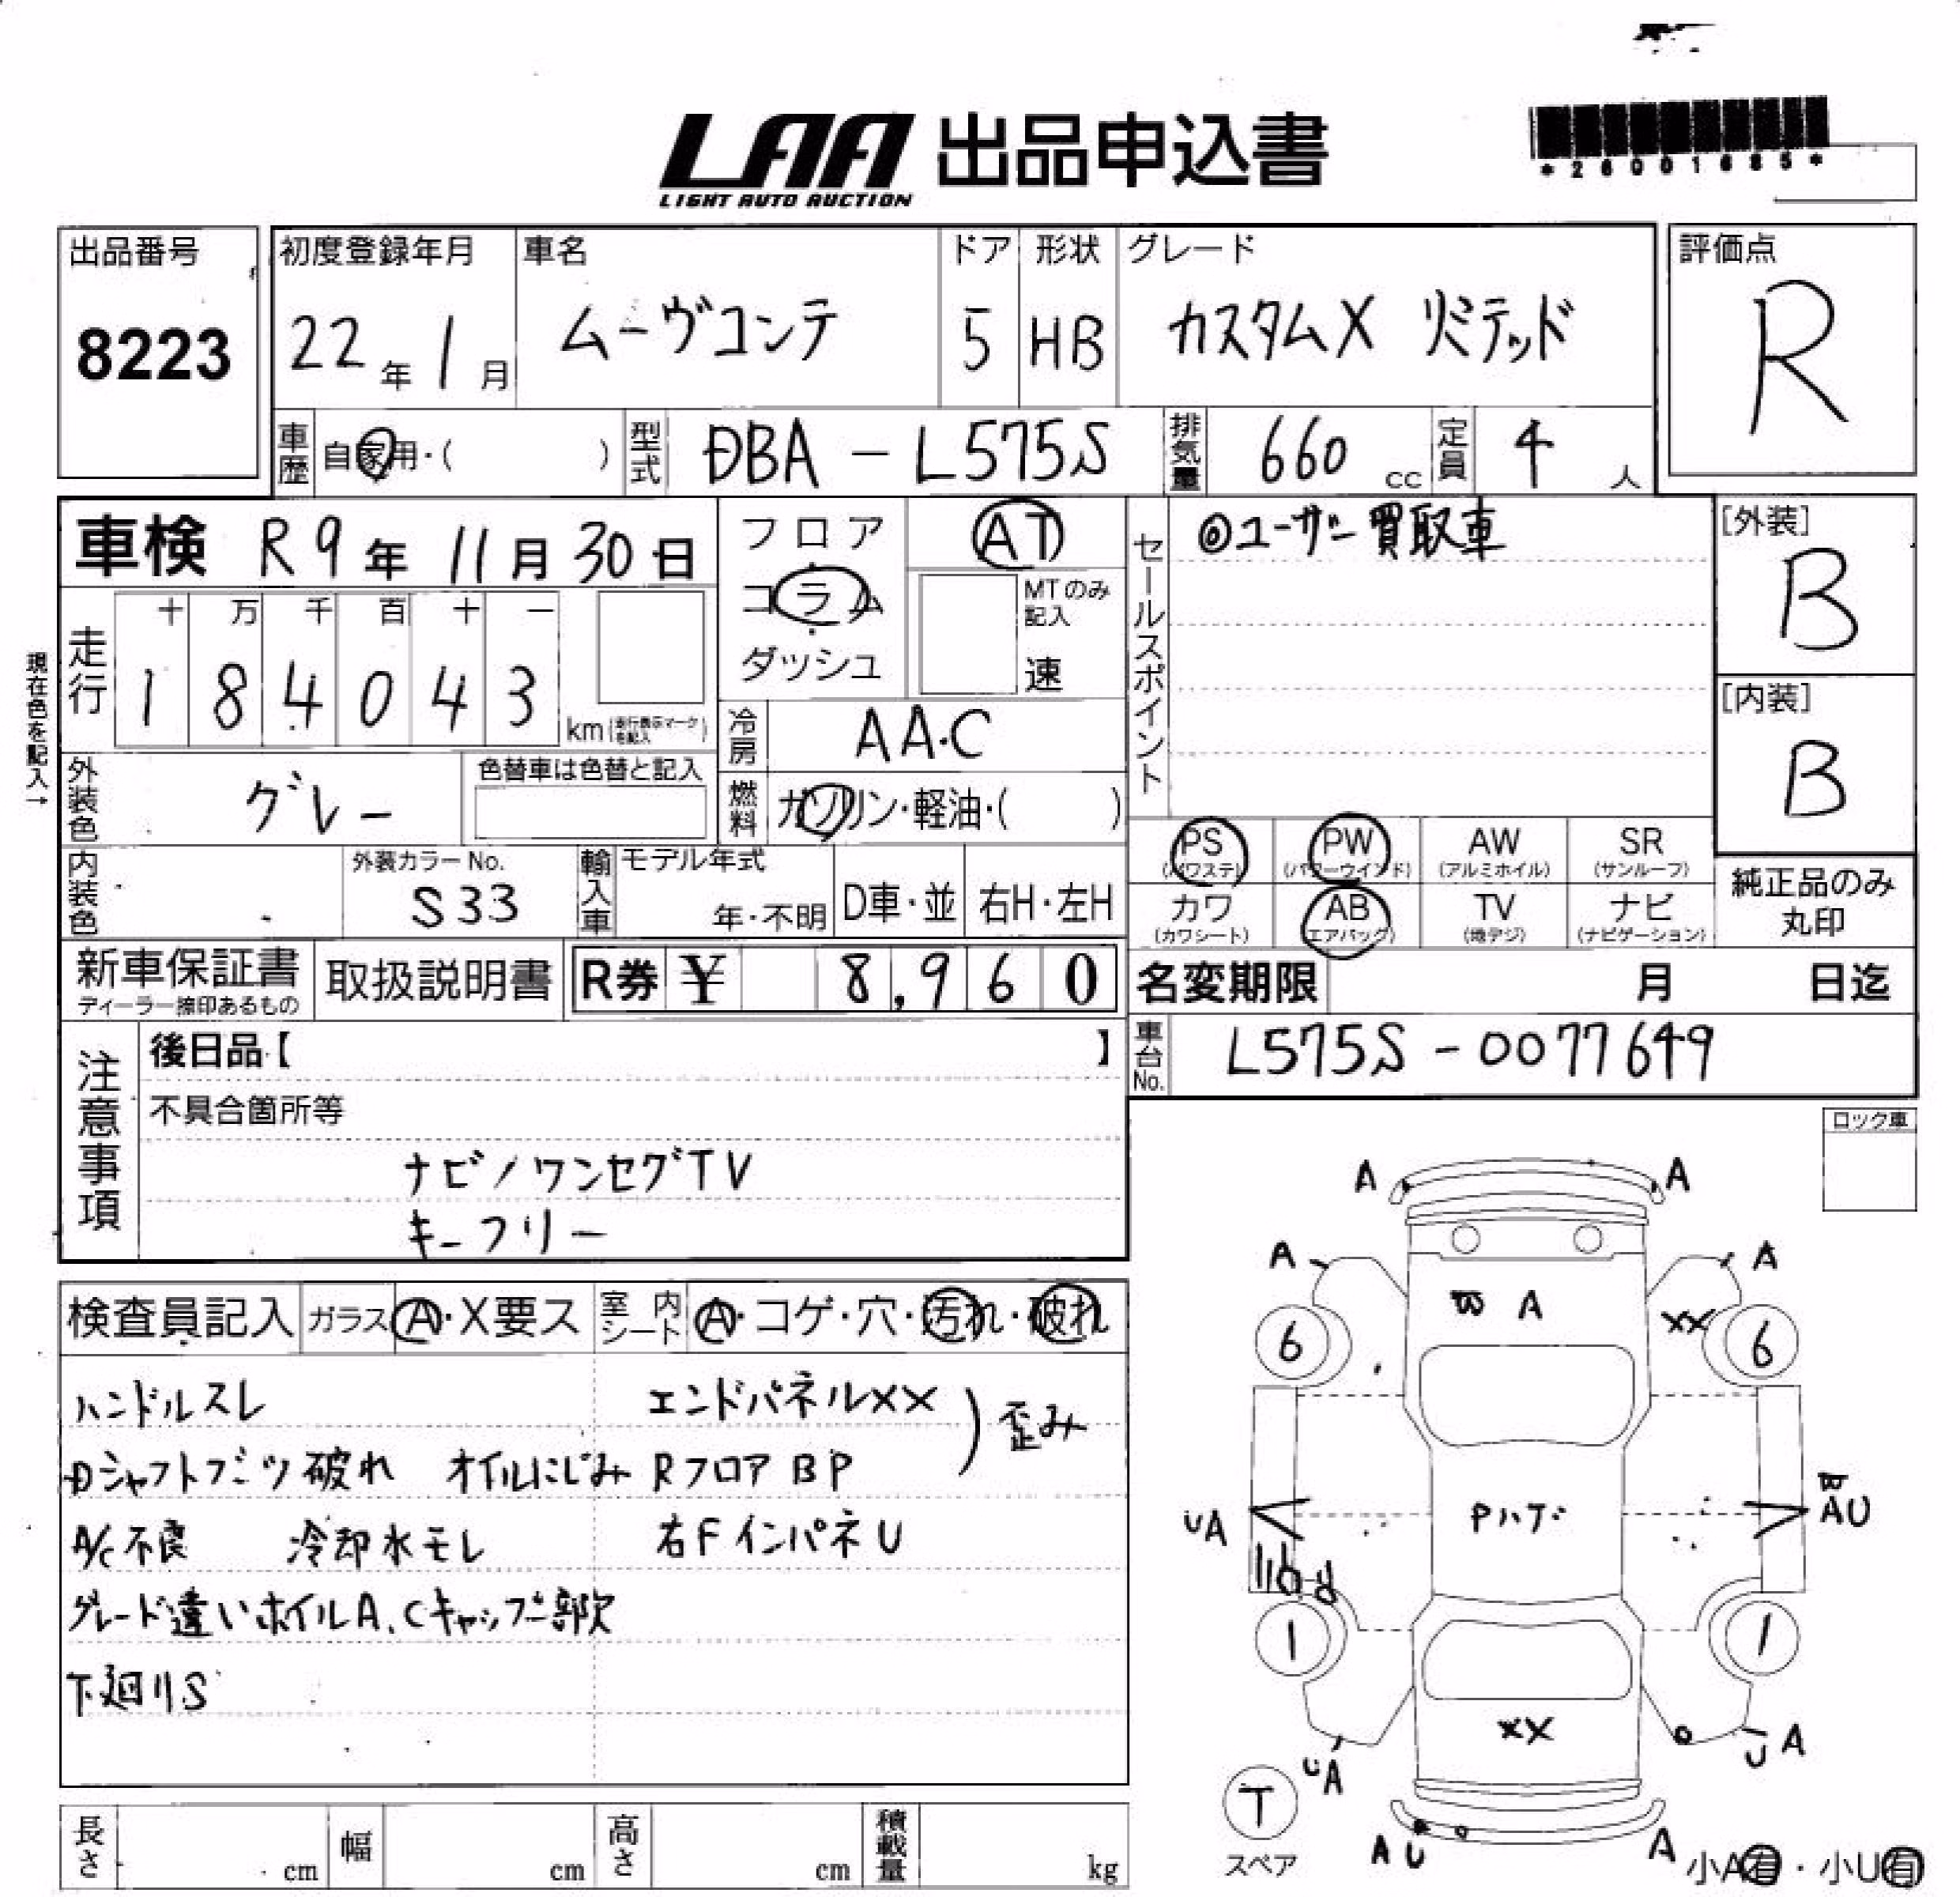 LAA 出品申込書
LIGHT AUTO AUCTION
*26001685*
出品番号
8223
初度登録年月
22年1月
車名
ムーヴコンテ
ドア
5
形状
HB
グレード
カスタムX リミテッド
評価点
R
車歴 自家用・( )
型式 DBA-L575S
排気量 660 cc
定員 4 人
車検 R9年11月30日
走行
十 万 千 百 十 一
1 8 4 0 4 3
km(走行表示マークを記入)
現在色を記入→
外装色 グレー
色替車は色替と記入
内装色
外装カラーNo.
S33
フロア
コラム
ダッシュ
AT
MTのみ記入
速
冷房 AA.C
燃料 ガソリン・軽油・( )
輸入車
モデル年式
年・不明
D車・並
右H・左H
セールスポイント
◎ユーザー買取車
[外装]
B
[内装]
B
PS
(パワステ)
PW
(パワーウインド)
AW
(アルミホイル)
SR
(サンルーフ)
カワ
(カワシート)
AB
(エアバッグ)
TV
(地デジ)
ナビ
(ナビゲーション)
純正品のみ
丸印
新車保証書
ディーラー捺印あるもの
取扱説明書
R券 ¥ 8,960
名変期限 月 日迄
車台No. L575S-0077649
注意事項
後日品【 】
不具合箇所等
ナビ/ワンセグTV
キーフリー
ロック車
検査員記入
ガラス A・X要ス
室内シート A・コゲ・穴・汚れ・破れ
ハンドルスレ
エンドパネルXX
歪み
Dシャフトブーツ破れ オイルにじみ
RフロアBP
A/C不良 冷却水モレ
右FインパネU
グレード違いホイルA、Cキャップ一部欠
下廻りS
A A
A A
A
XX
6 6
UA
AU
Pハゲ
1 1
XX
UA
UA
T
スペア
AU
A
小A有・小U有
長さ cm
幅 cm
高さ cm
積載量 kg